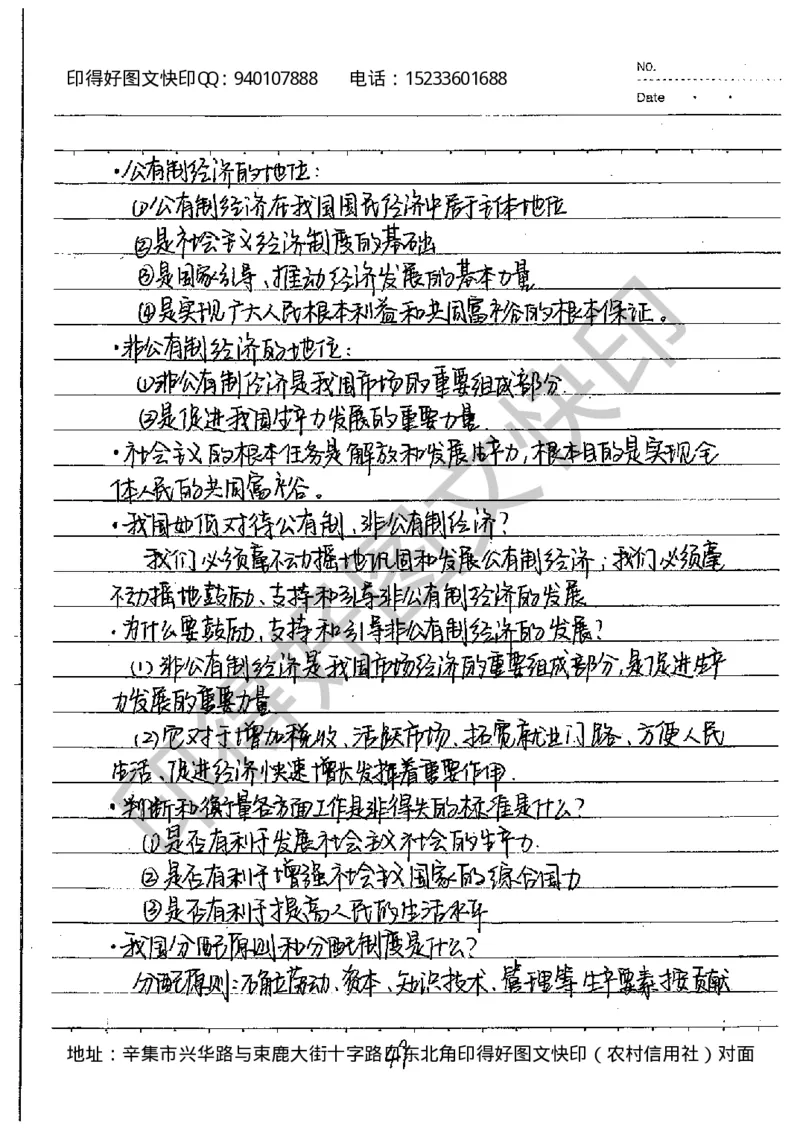 印得好图文快印QQ：940107888 电话：15233601688
NO.
Date
·公有制经济的地位：
①公有制经济在我国国民经济中居于主体地位
②是社会主义经济制度的基础
③是国家引导、推动经济发展的基本力量
④是实现广大人民根本利益和共同富裕的根本保证。
·非公有制经济的地位：
①非公有制经济是我国市场的重要组成部分.
②是促进我国生产力发展的重要力量.
·社会主义的根本任务是解放和发展生产力,根本目的是实现全
体人民的共同富裕。
·我国如何对待公有制、非公有制经济？
我们必须毫不动摇地巩固和发展公有制经济；我们必须毫
不动摇地鼓励、支持和引导非公有制经济的发展
·为什么要鼓励,支持和引导非公有制经济的发展？
(1)非公有制经济是我国市场经济的重要组成部分,是促进生产
力发展的重要力量
(2)它对于增加税收、活跃市场、拓宽就业门路、方便人民
生活、促进经济快速增长发挥着重要作用.
·判断和衡量各方面工作是非得失的标准是什么？
①是否有利于发展社会主义社会的生产力.
②是否有利于增强社会主义国家的综合国力
③是否有利于提高人民的生活水平
·我国分配原则和分配制度是什么？
分配原则:确立劳动、资本、知识技术、管理等生产要素按贡献
地址：辛集市兴华路与束鹿大街十字路口东北角印得好图文快印（农村信用社）对面
印得好图文快印